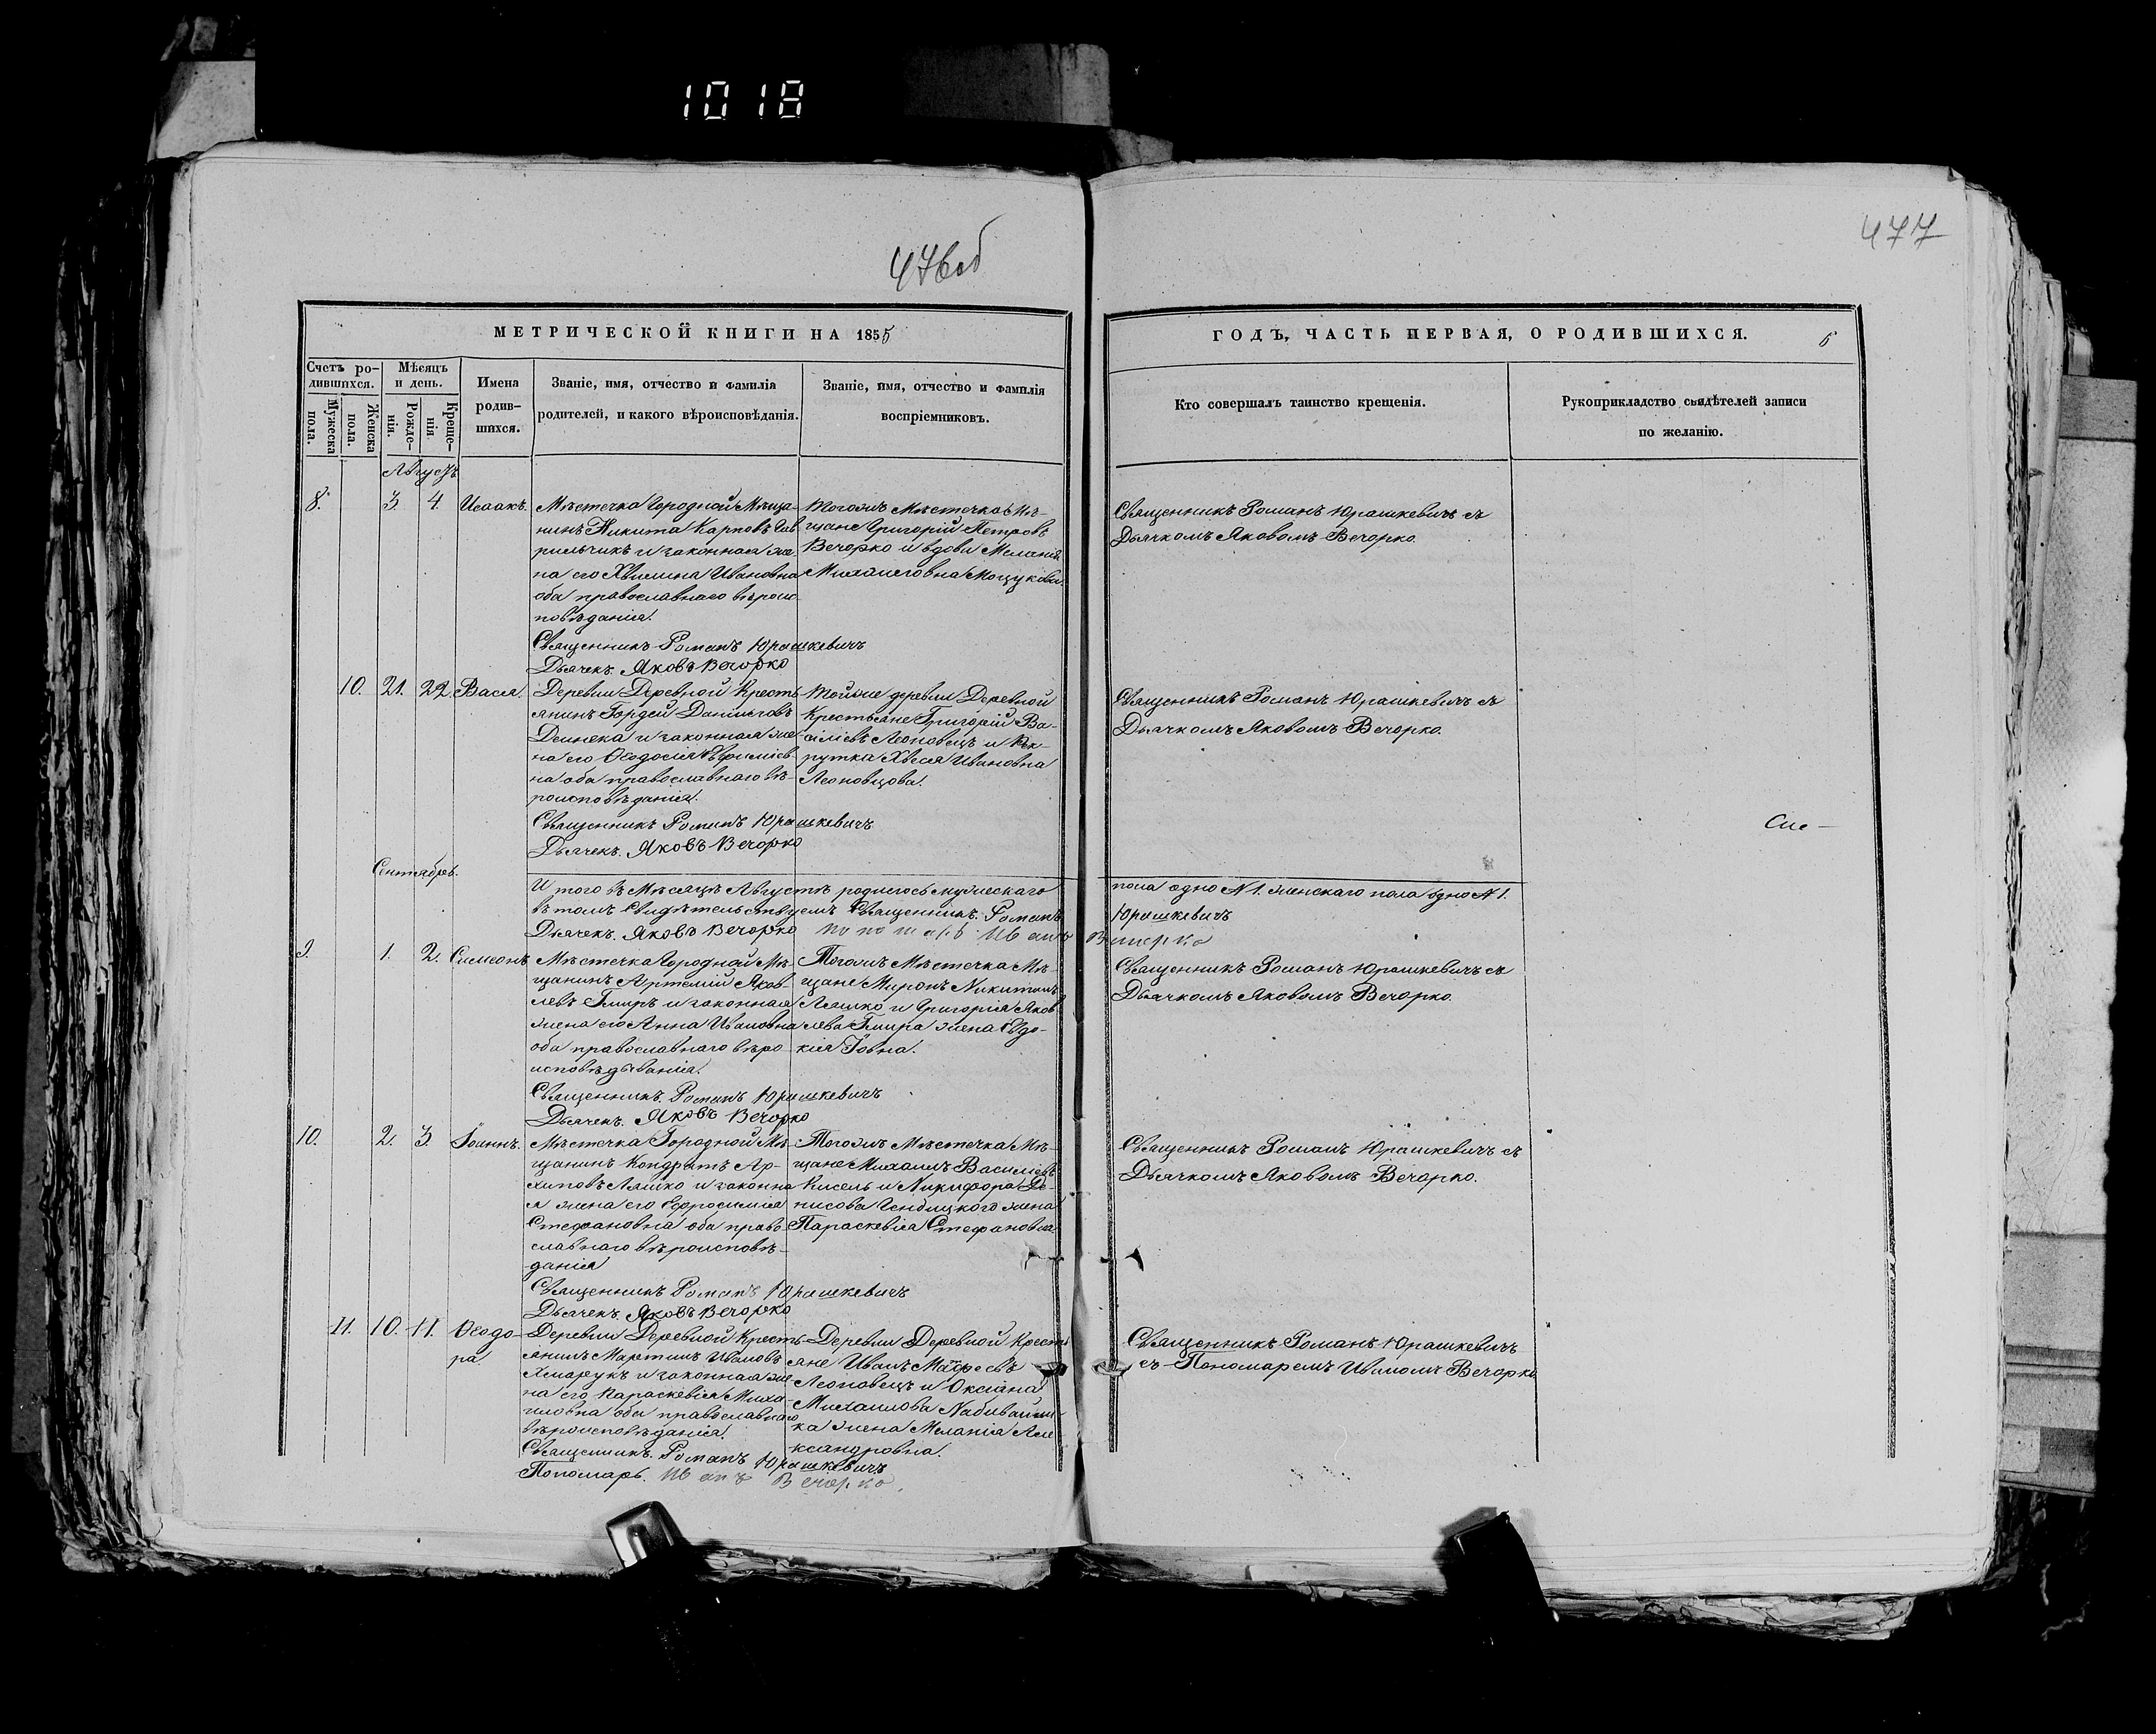 1018
476об
477
МЕТРИЧЕСКОЙ КНИГИ НА 1855
ГОДЪ, ЧАСТЬ ПЕРВАЯ, О РОДИВШИХСЯ.
6
Счетъ ро-
дившихся.
Мужеска пола.
Женска пола.
Мѣсяцъ
и день.
Рожде-
нія.
Креще-
нія
Имена
родив-
шихся.
Званіе, имя, отчество и фамилія
родителей, и какого вѣроисповѣданія.
Званіе, имя, отчество и фамилія
воспріемниковъ.
Кто совершалъ таинство крещенія.
Рукоприкладство свидѣтелей записи
по желанію.
Августъ
8. 3. 4. Исаакъ.
Мѣстечка Городной Мѣща-
нинъ Никита Карповъ Гав
рильчикъ и законная же
на его Ивановна
оба православнаго вѣроис
повѣданія.
Священникъ Романъ Юрашкевичъ
Дьячекъ. Яковъ Вечорко
Тогожъ Мѣстечка Мѣ-
щане Григорій Петровъ
Вечорко и вдова Меланія
Михайловна
Священникъ Романъ Юрашкевичъ съ
Дьячкомъ Яковомъ Вечорко
10. 21. 22. Васса.
Деревни Деревной Кресть
янинъ Гордей Даниловъ
Дейнека и законная же
на его Ѳеодосія Евфиміев
на оба православнаго вѣ
роисповѣданія.
Священникъ Романъ Юрашкевичъ
Дьячекъ. Яковъ Вечорко
Тойже деревни Деревной
Крестьяне Григорій Ва-
силіевъ Леоновецъ и Рек-
рутка Ивановна
Леоновцова.
Священникъ Романъ Юрашкевичъ съ
Дьячкомъ Яковомъ Вечорко.
Сентябрь.
Итого въ Мѣсяцѣ Августѣ родилось мужескаго
пола одно №1. женскаго пола одно №1.
въ томъ свидѣтельствуемъ Священникъ. Романъ
Юрашкевичъ
Дьячекъ. Яковъ Вечорко Пономарь Иванъ Вечорко
9. 1. 2. Симеонъ
Мѣстечка Городной Мѣ-
щанинъ Артемій Яков-
левъ Гмиръ и законная
жена его Анна Ивановна
оба православнаго вѣро
исповѣдыванія.
Священникъ. Романъ Юрашкевичъ
Дьячекъ. Яковъ Вечорко
Тогожъ Мѣстечка Мѣ-
щане Миронъ Никитинъ
Ляшко и Григорія Яков
лева Гмира жена Евдо-
кія Іовна.
Священникъ Романъ Юрашкевичъ съ
Дьячкомъ Яковомъ Вечорко.
10. 2. 3. Іоаннъ.
Мѣстечка Городной Мѣ-
щанинъ Кондратъ Ар-
хиповъ Ляшко и законна
я жена его Ефросинія
Стефановна оба право
славнаго вѣроисповѣ-
данія
Священникъ Романъ Юрашкевичъ
Дьячекъ. Яковъ Вечорко
Тогожъ Мѣстечка Мѣ-
щане Михаилъ Василіевъ
Кисель и Никифора Де-
нисова жена
Параскевія Стефановна
Священникъ Романъ Юрашкевичъ съ
Дьячкомъ Яковомъ Вечорко.
11. 10. 11. Ѳеодо-
ра.
Деревни Деревной Кресть
янинъ Мартинъ Ивановъ
Хмарукъ и законная же
на его Параскевія Миха
иловна оба православнаго
вѣроисповѣданія.
Священникъ. Романъ Юрашкевичъ
Пономарь. Иванъ Вечорко.
Деревни Деревной Кресть
яне Иванъ
Леоновецъ и
Михаилова
ка жена Меланія Але
ксандровна.
Священникъ Романъ Юрашкевичъ
съ Пономаремъ Иваномъ Вечорко